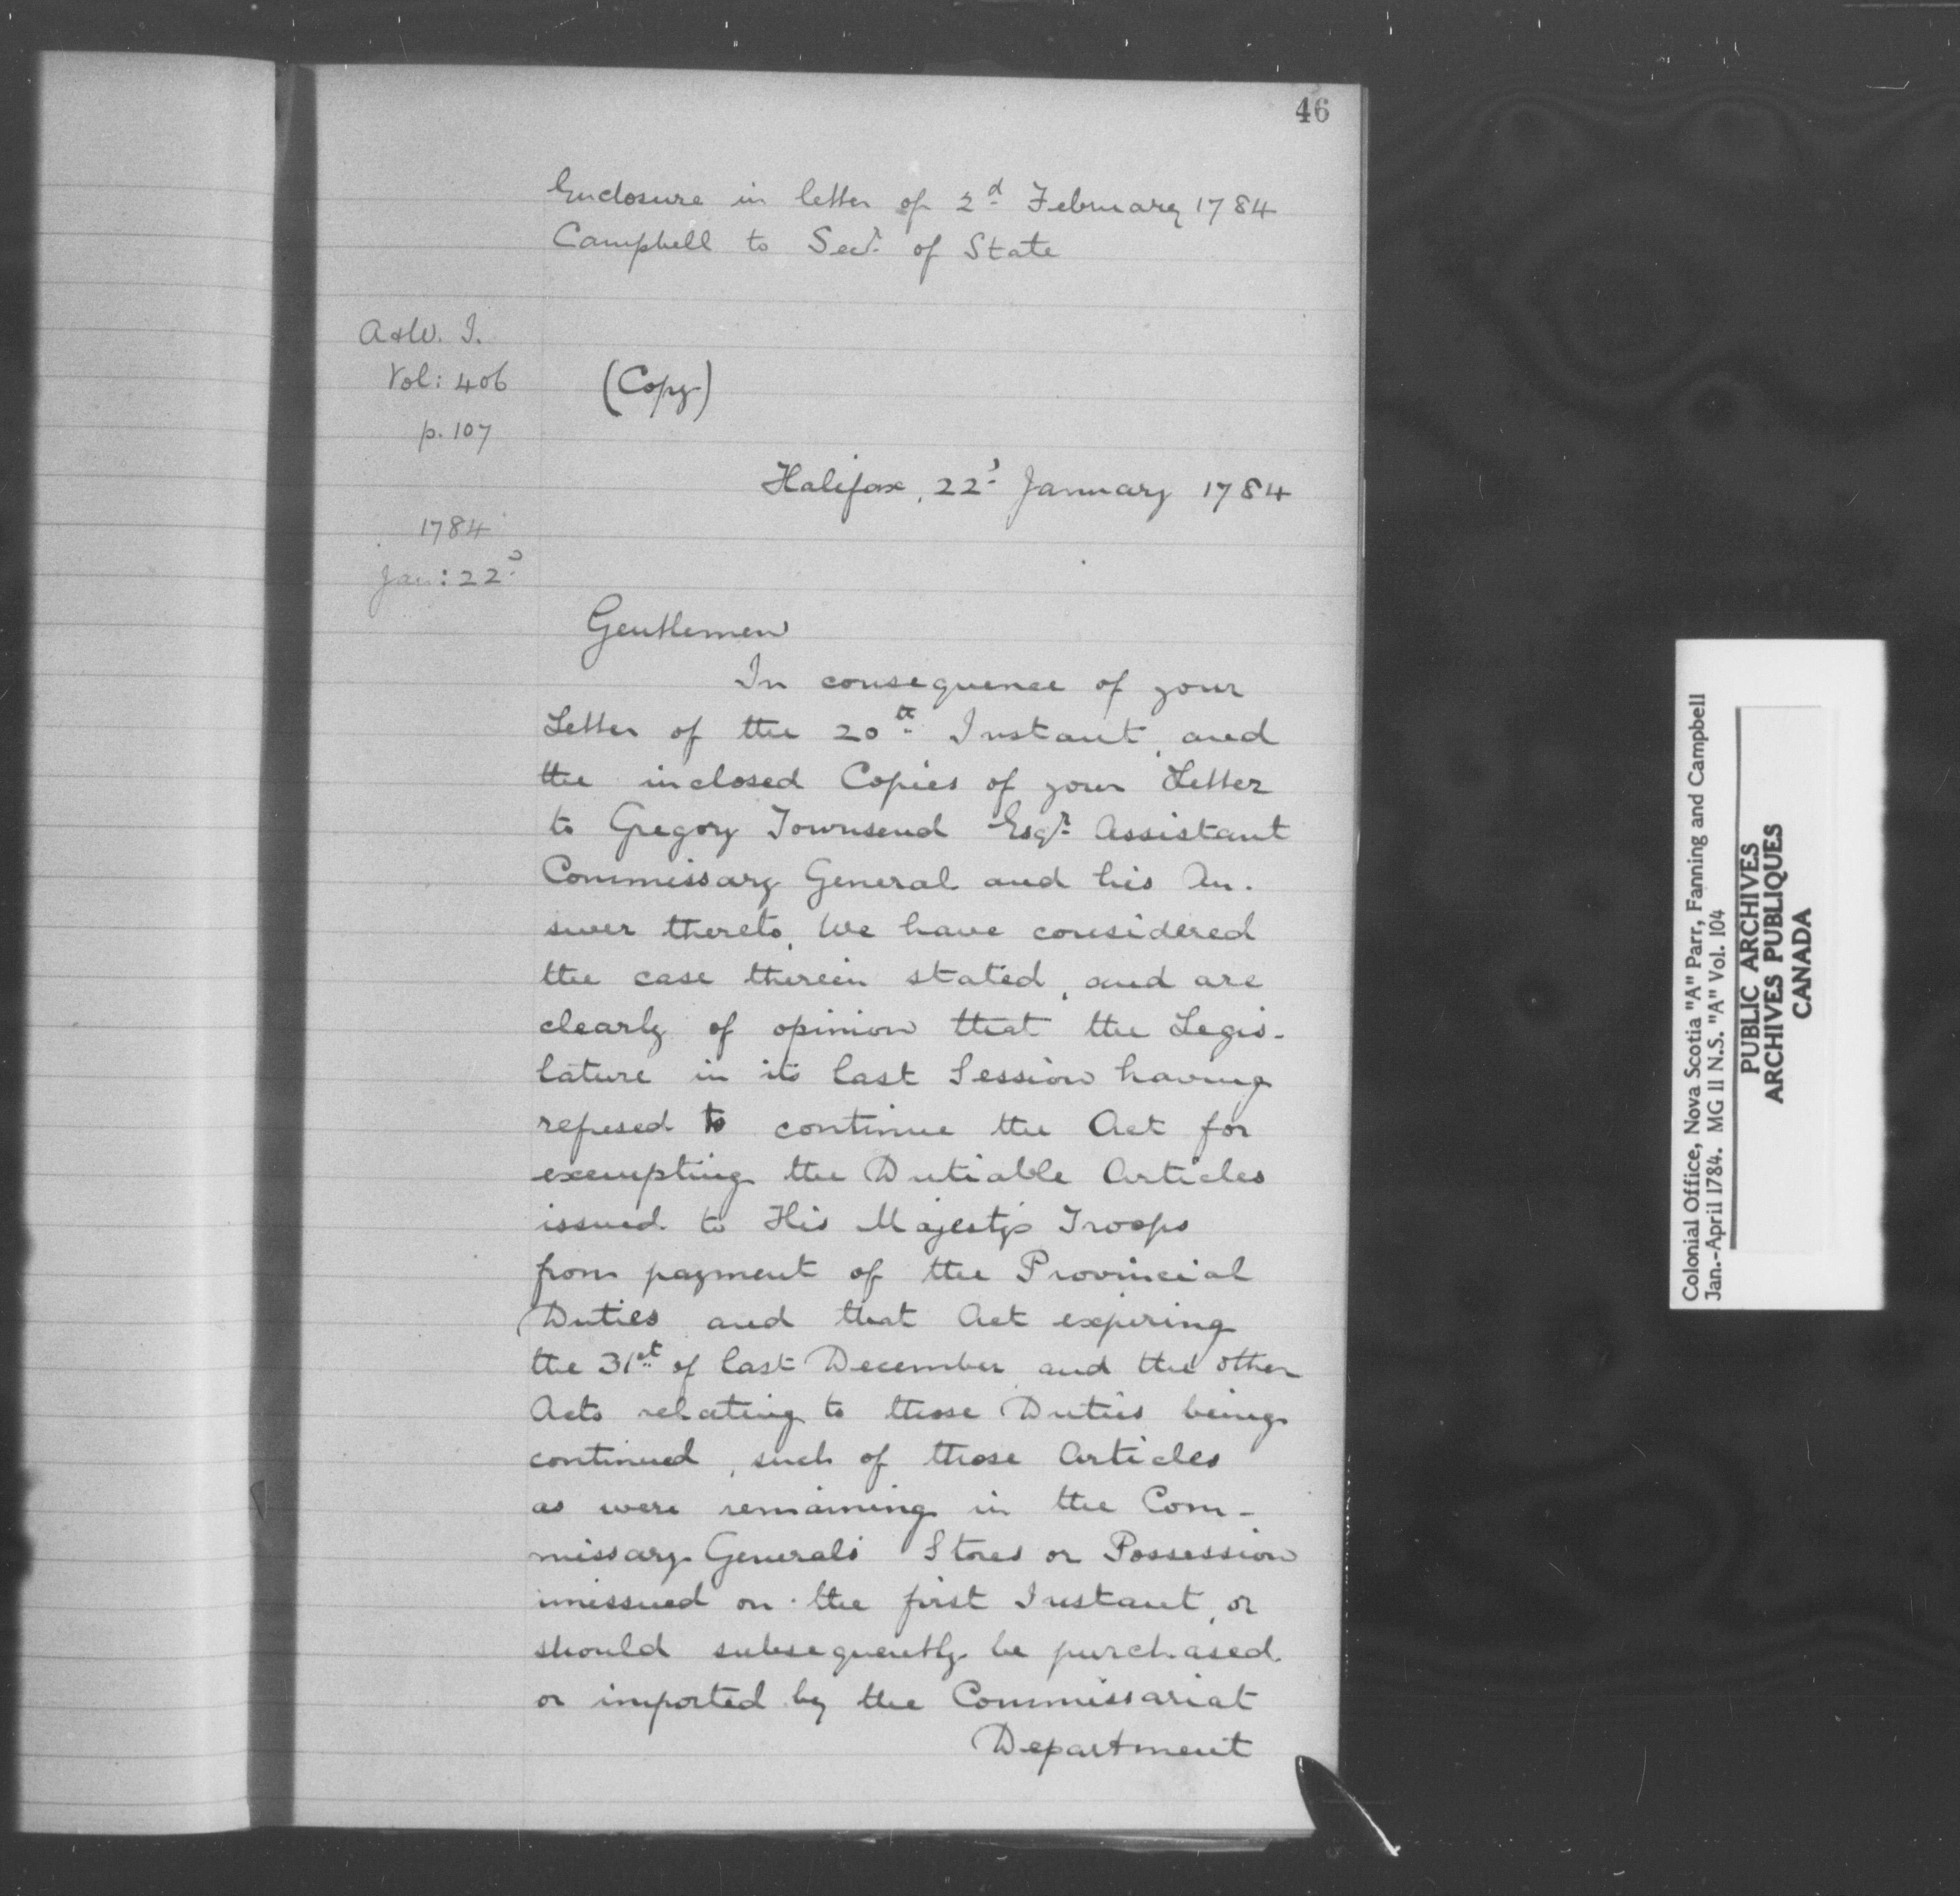 46
Enclosure in letter of 2d February 1784
Campbell to Secy. of State
A & W. I.
Vol: 406
p. 107
(Copy)
Halifax, 22d January 1784
1784
Jan: 22d
Gentlemen
In consequence of your
Letter of the 20th Instant, and
the inclosed Copies of your Letter
to Gregory Townsend Esqr. Assistant
Commissary General and his An-
swer thereto, We have considered
the case therein stated, and are
clearly of opinion that the Legis-
lature in its last Session having
refused to continue the Act for
exempting the Dutiable Articles
issued to His Majesty's Troops
from payment of the Provincial
Duties and that Act expiring
the 31st of last December, and the other
Acts relating to those Duties being
continued, such of those Articles
as were remaining in the Com-
missary Generals Stores or Possession
unissued on the first Instant, or
should subsequently be purchased
or imported by the Commissariat
Department
Colonial Office, Nova Scotia "A" Parr, Fanning and Campbell
Jan.-April 1784. MG 11 N.S. "A" Vol. 104
PUBLIC ARCHIVES
ARCHIVES PUBLIQUES
CANADA